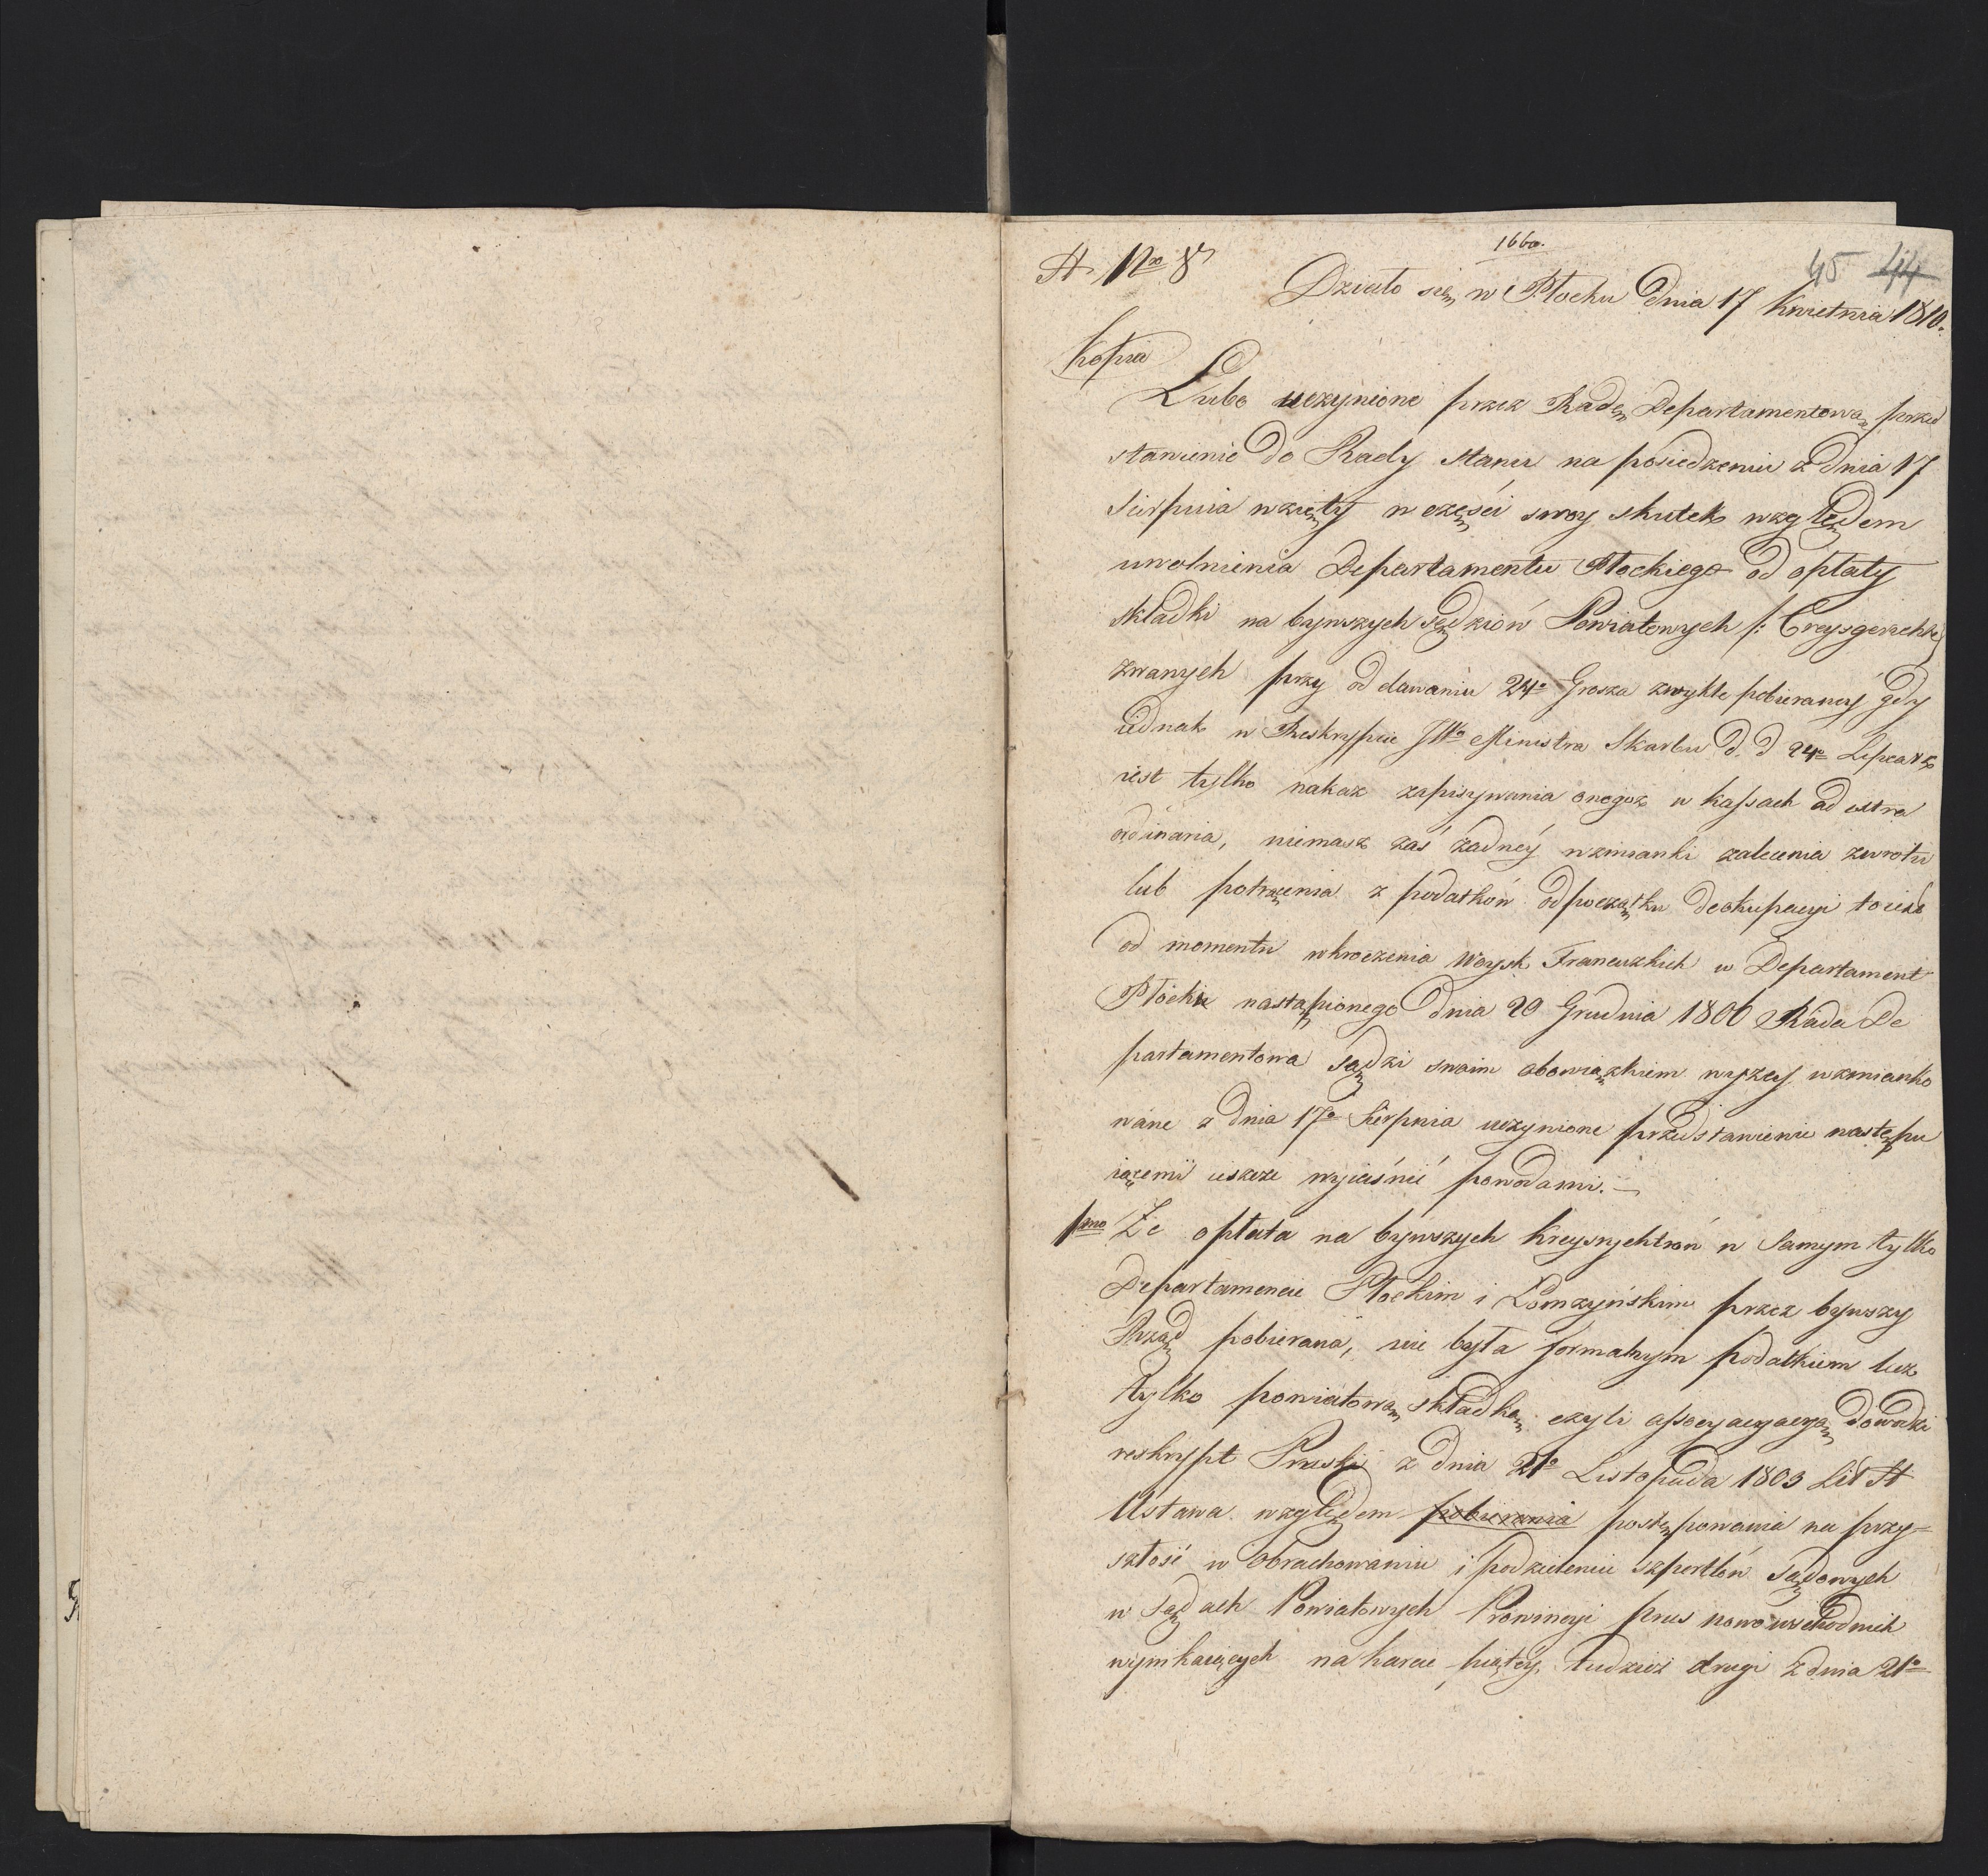 166o.
A. Nro 8
45 44
Działo się w Płocku Dnia 17 Kwietnia 1810.
Kopia
Lubo uczynione przez Radę Departamentową przed
stawienie do Rady stanu na posiedzeniu z dnia 17
Sierpnia wzięły w częsci swoy skutek względem
uwolnienia Departamentu Płockiego od opłaty
składki na bywszych sędziów Powiatowych /: Creysgericht
zwanych przy oddawaniu 24o Grosza zwykle pobieraney gdy
iednak w Reskrypcie Ministra Skarbu d. d 24o Lipca
iest tylko nakaz zapisywania onegoż w kassach ad extra
ordinaria, niemasz zaś żadnéy wzmianki zalecenia zwrotu
lub potrącenia z podatków od początku deokupacyi to iest
od momentu wkroczenia Woysk Francuzkich w Departament
Płocki nastąpionego dnia 20 Grudnia 1806 Rada De
partamentowa sądzi swoim obowiązkiem wyżey wzmianko
wane z dnia 17o Sierpnia uczynione przedstawienie nastepu
iącemi ieszcze wyiaśnić powodami. —
1mo Że opłata na bywszych Kreysrychtrów w Samym tylko
Departamencie Płockim i Łomżyńskim przez bywszy
Rząd pobierana, nie była formalnym podatkiem lecz
tylko powiatową składką czyli assocyacyacyą dowodzi
reskrypt Pruski z dnia 21o Listopada 1803 Lit A
Ustawa względem pobierania postępowania na przy=
szłość w obrachowaniu i podzieleniu szportlów Sądowych
w Sądach Powiatowych Prowincyi Prus nowo wschodnich
wynikaiących na karcie piątéy, tudzież drugi z dnia 21o